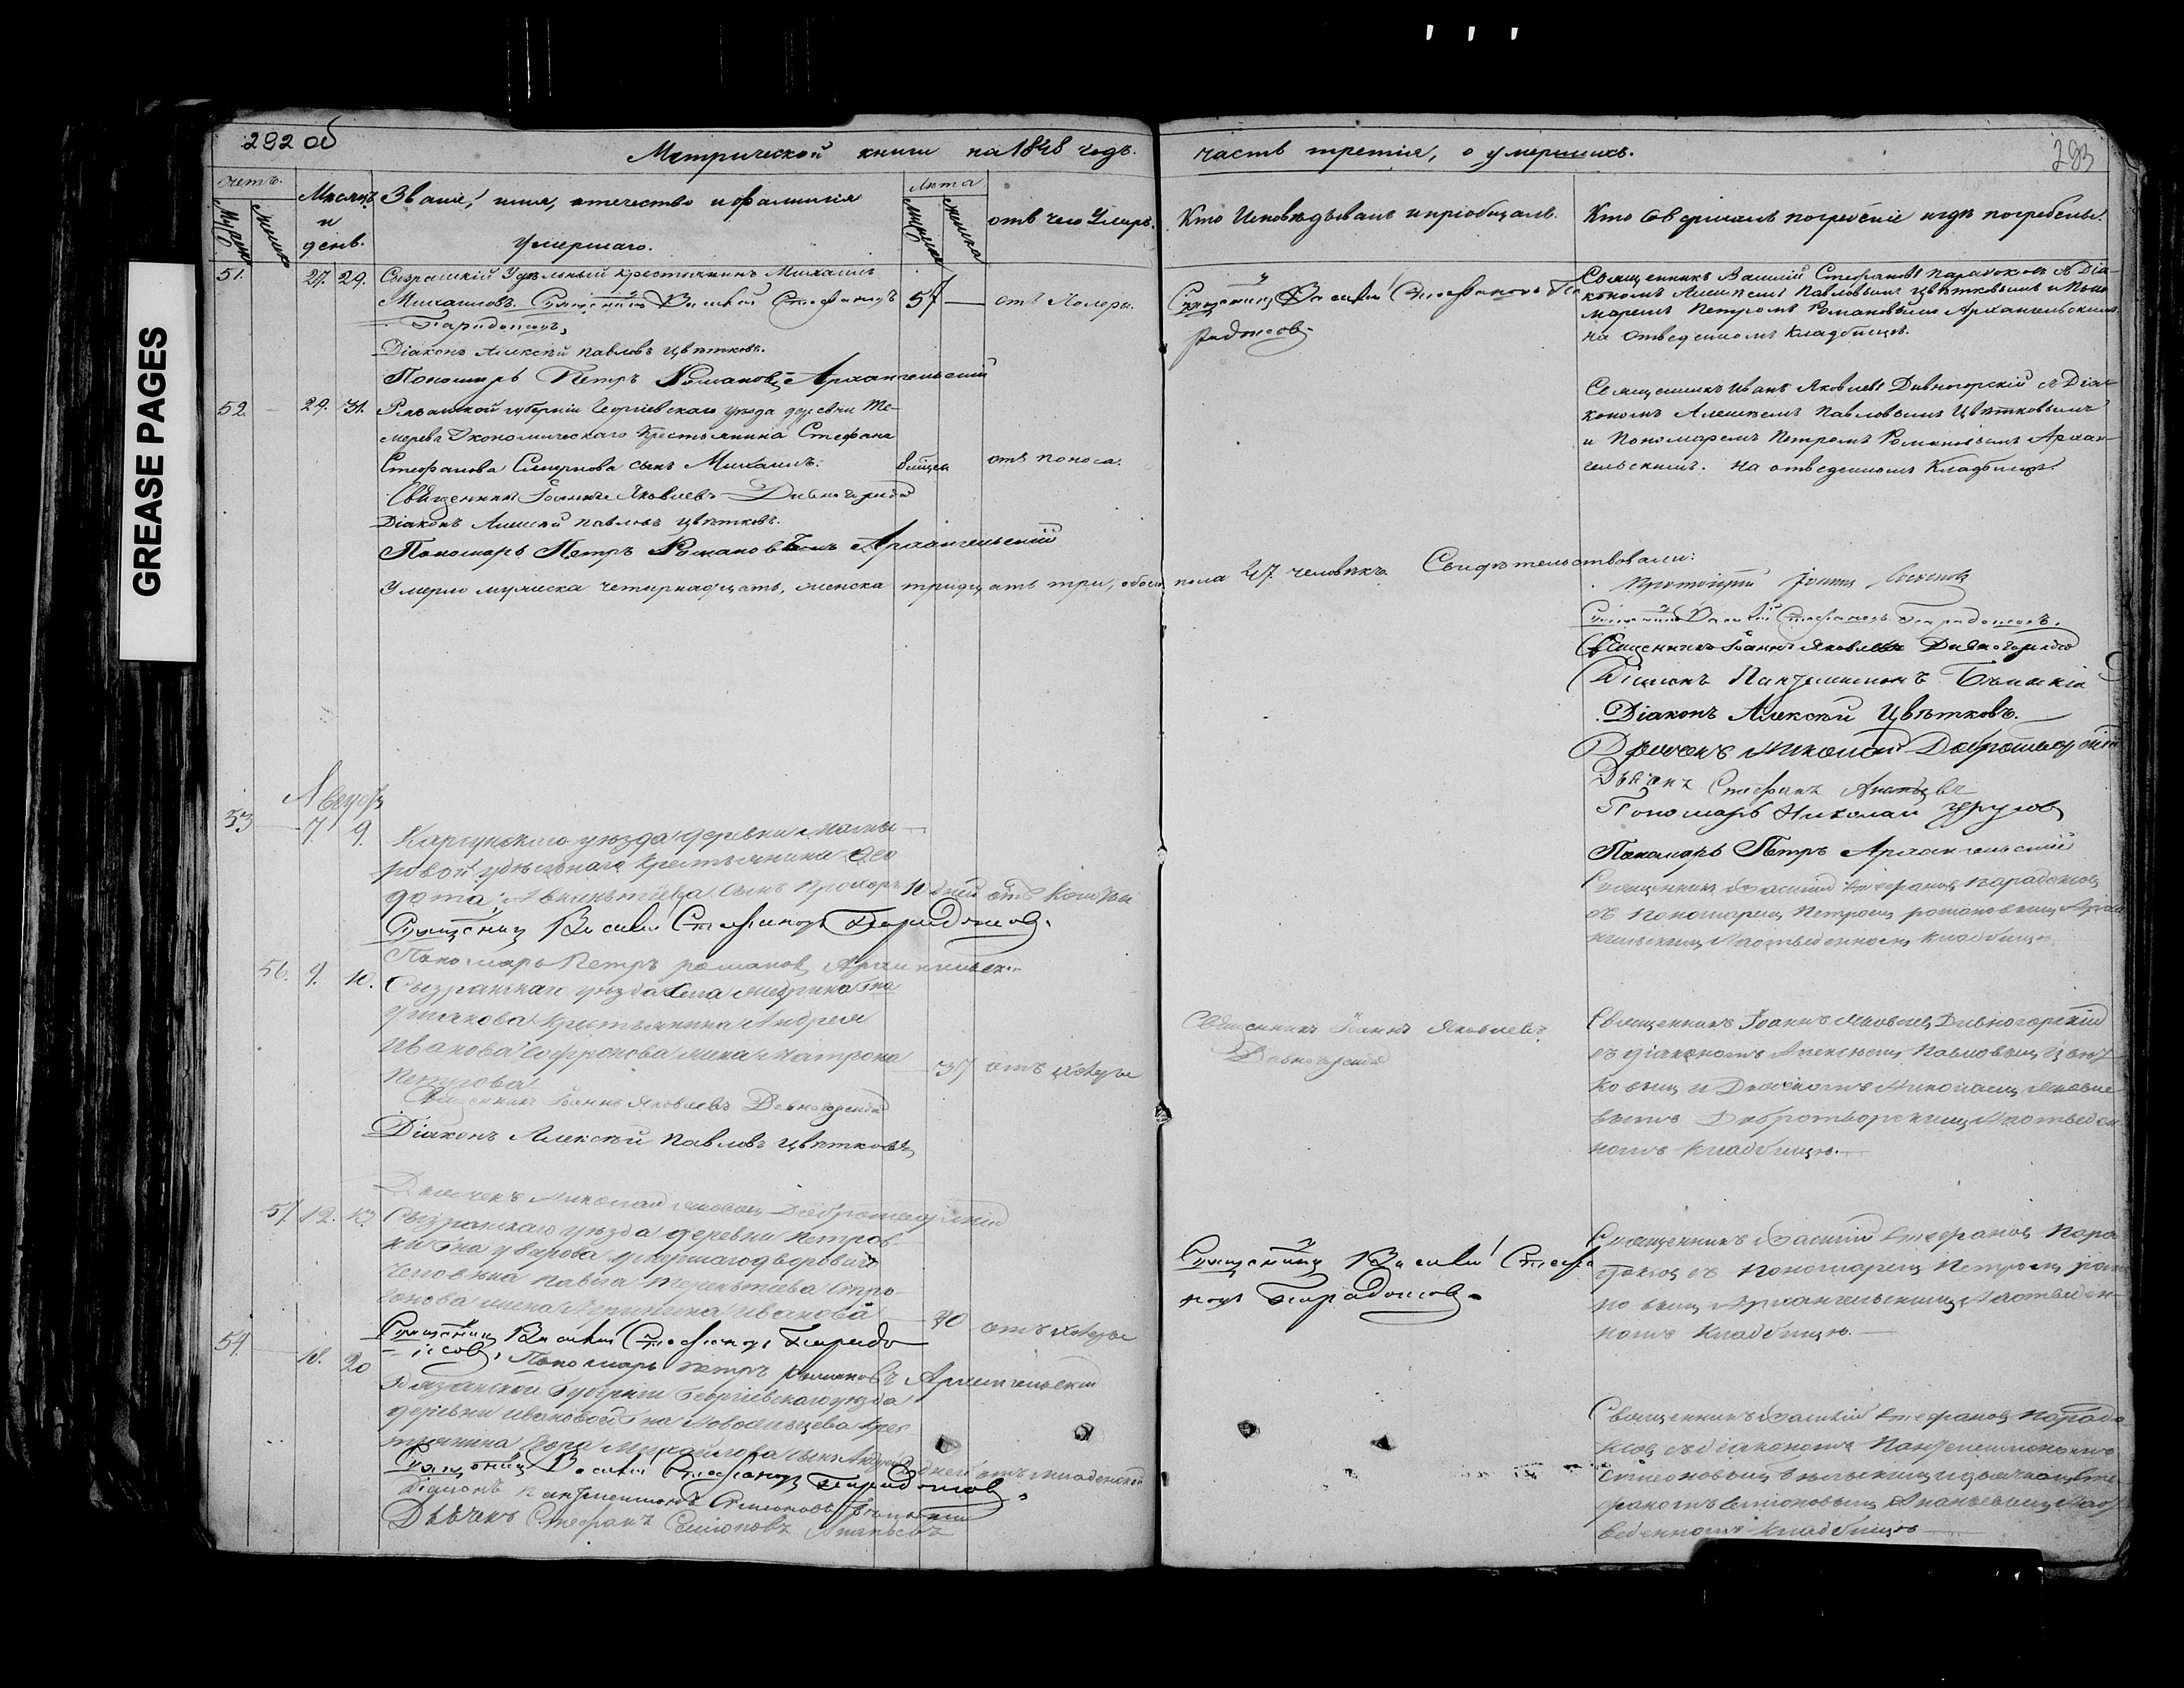 292 об
Метрической книги на 1848 годъ.
часть третія, о умершихъ.
293
GREASE PAGES
счетъ.
Мужеска
Женска
Мѣсяцъ и день.
Званіе, имя, отечество и фамилія умершаго.
Лѣта
мужеска
женска
отъ чего Умеръ.
Кто Исповѣдывалъ и пріобщалъ.
Кто Совершалъ погребеніе и гдѣ погребены.
51.
27. 29.
Сызранскій Удѣльный крестьянинъ Михаилъ
Михаиловъ. Священникъ Василій Стефановъ
Парадоксовъ,
Діаконъ Алексѣй Павловъ Цвѣтковъ.
Пономарь Петръ Романовъ Архангельскій
57 —
отъ Холеры.
Священникъ Василій Стефановъ Па
радоксовъ
Священникъ Василій Стефановъ Парадоксовъ съ Діа-
кономъ Алексѣемъ Павловымъ Цвѣтковымъ и Поно
маремъ Петромъ Романовымъ Архангельскимъ
на отведенномъ Кладбищѣ.
52. —
29. 31.
Рязанской губерніи Георгіевскаго уѣзда деревни Те-
мерева Экономическаго Крестьянина Стефана
Стефанова Смирнова сынъ Михаилъ.
Священникъ Іоаннъ Яковлевъ Дивногорскій
Діаконъ Алексѣй Павловъ Цвѣтковъ.
Пономарь Петръ Романовъ Архангельскій
8 мѣсяц
отъ поноса.
Священникъ Иванъ Яковлевъ Дивногорскій съ Діа-
кономъ Алексѣемъ Павловымъ Цвѣтковымъ
и Пономаремъ Петромъ Романовымъ Архан-
гельскимъ. на отведенномъ Кладбищѣ.
Умерло мужеска четырнадцать, женска тридцать три, обоего пола 47. человѣкъ. Свидѣтельствовали:
Протоіерей Іоаннъ
Священникъ Василій Стефановъ Парадоксовъ.
Священникъ Іоаннъ Яковлевъ Дивногорскій
Діаконъ Пантелеимонъ
Діаконъ Алексѣй Цвѣтковъ.
Дьячекъ Николай Добротворскій
Дьячекъ Стефанъ Ананьевъ
Пономарь Николай
Пономарь Петръ Архангельскій
Августъ
53
7. 9.
Карсунскаго уѣзда деревни
ровой удѣльнаго крестьянина Ѳео
дота сынъ Прохоръ
Священникъ Василій Стефановъ Парадоксовъ.
Пономарь Петръ Романовъ Архангельскій
10 дней
отъ
Священникъ Василій Стефановъ Парадоксовъ
съ Пономаремъ Петромъ Романовымъ Арха
нгельскимъ На отведенномъ кладбищѣ
56. 9. 10.
Сызранскаго уѣзда села Г-на
Ушакова Крестьянина Андрея
Иванова Софронова жена Матрона
Петрова
Священникъ Іоаннъ Яковлевъ Дивногорскій
Діаконъ Алексѣй Павловъ Цвѣтковъ
Дьячекъ Николай Яковлевъ Добротворскій
37
отъ холеры
Священникъ Іоаннъ Яковлевъ
Дивногорскій
Священникъ Іоаннъ Яковлевъ Дивногорскій
съ діакономъ Алексѣемъ Павловымъ Цвѣт
ковымъ и Дьячкомъ Николаемъ Яковле
вымъ Добротворскимъ На отведен
номъ кладбищѣ. —
57 12. 13.
Сызранскаго уѣзда деревни Петров
ки Г-на Уварова умершаго двороваго
человѣка Павла Терентьева
жена Иванова
Священникъ Василій Стефановъ Парадо
ксовъ, Пономарь Петръ Романовъ Архангельскій
70
отъ холеры
Священникъ Василій Стефа
новъ Парадоксовъ.
Священникъ Василій Стефановъ Пара
доксовъ съ Пономаремъ Петромъ Рома
новымъ Архангельскимъ На отведен
номъ кладбищѣ. —
54. —
18. 20
Рязанской губерніи Георгіевскаго уѣзда
деревни Ивановой Г-на крес
тьянина Егора Михайлова сынъ Андрей
дней
отъ младенской
Священникъ Василій Стефановъ Парадоксовъ.
Діаконъ Пантелеимонъ Симеоновъ
Дьячекъ Стефанъ Семіоновъ Ананьевъ
Священникъ Василій Стефановъ Парадо
ксовъ съ діакономъ Пантелеимономъ
Симеоновымъ и дьячкомъ Сте
фаномъ Семіоновымъ Ананьевымъ На от
веденномъ кладбищѣ —